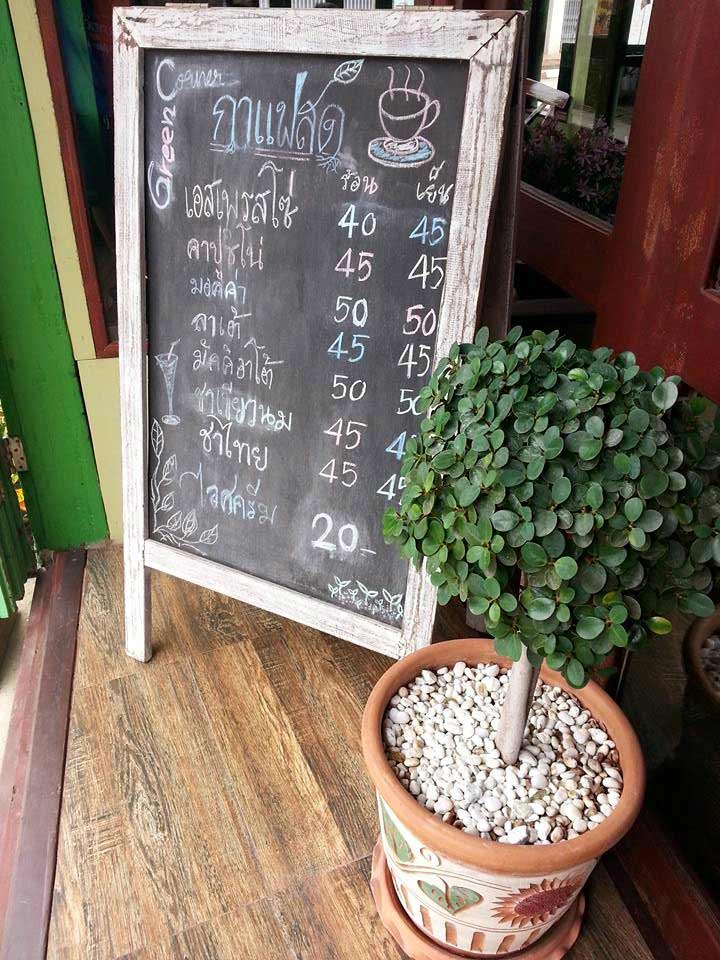 Green Corner
กาแฟสด
ร้อน เย็น
เอสเพรสโซ่ 40 45
คาปูชิโน่ 45 45
มอคค่า 50 50
ลาเต้ 45 45
มัคคิอาโต้ 50 50
ชาเขียวนม 45 4
ชาไทย 45 45
ไอศครีม 20.-